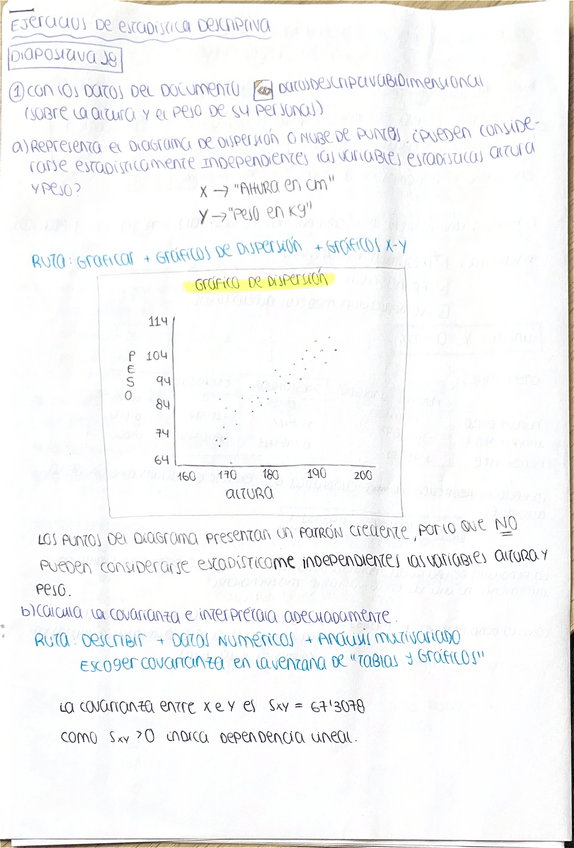 EJERCICIOS DE ESTADÍSTICA DESCRIPTIVA
DIAPOSITIVA 58
① CON LOS DATOS DEL DOCUMENTO DATOSDESCRIPTIVABIDIMENSIONAL
(SOBRE LA ALTURA Y EL PESO DE 54 PERSONAS)
a) REPRESENTA EL DIAGRAMA DE DISPERSIÓN O NUBE DE PUNTOS. ¿PUEDEN CONSIDE-
RARSE ESTADÍSTICAMENTE INDEPENDIENTES LAS VARIABLES ESTADÍSTICAS ALTURA
Y PESO?
X → "ALTURA en cm"
Y → "PESO en Kg"
RUTA: GRAFICAR + GRÁFICOS DE DISPERSIÓN + GRÁFICOS X-Y
GRÁFICO DE DISPERSIÓN
114
104
94
84
74
64
PESO
160 170 180 190 200
ALTURA
LOS PUNTOS DEL DIAGRAMA PRESENTAN UN PATRÓN CRECIENTE, POR LO QUE NO
PUEDEN CONSIDERARSE ESTADÍSTICOME INDEPENDIENTES LAS VARIABLES ALTURA Y
PESO.
b) CALCULA LA COVARIANZA E INTERPRÉTALA ADECUADAMENTE.
RUTA: DESCRIBIR + DATOS NUMÉRICOS + ANÁLISIS MULTIVARIADO
ESCOGER COVARIANZA EN LA VENTANA DE "TABLAS Y GRÁFICOS"
LA COVARIANZA ENTRE X E Y ES Sxy = 67'3078
COMO Sxy > 0 INDICA DEPENDENCIA LINEAL.